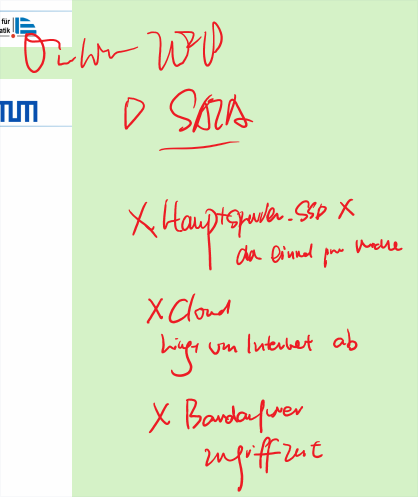 für
atik
TUM
SATA
X Hauptspeicher. SSD X
da einmal pro Woche
X Cloud
hängt vom Internet ab
X Bandlaufwerk
zugriffzeit